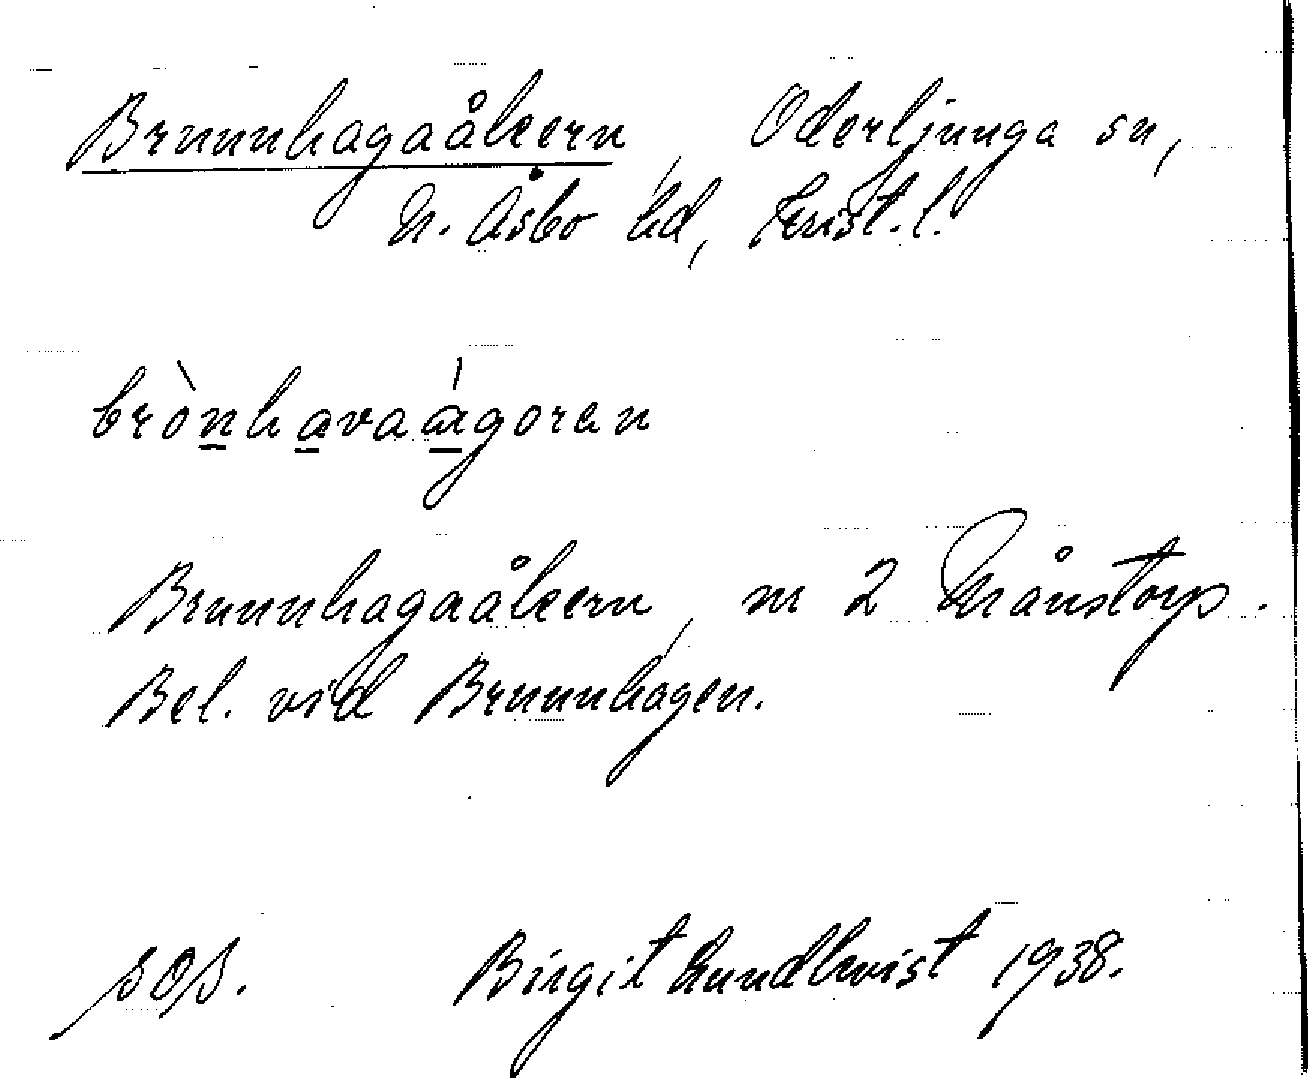 Brunnhagaåkern, Oderljunga sn,
N. Åsbo hd, Krist. l.
brònhavaágoren
Brunnhagaåkern, nr 2 Månstorp.
Bel. vid Brunnhagen.
sOs. Birgit Lundkvist 1938.